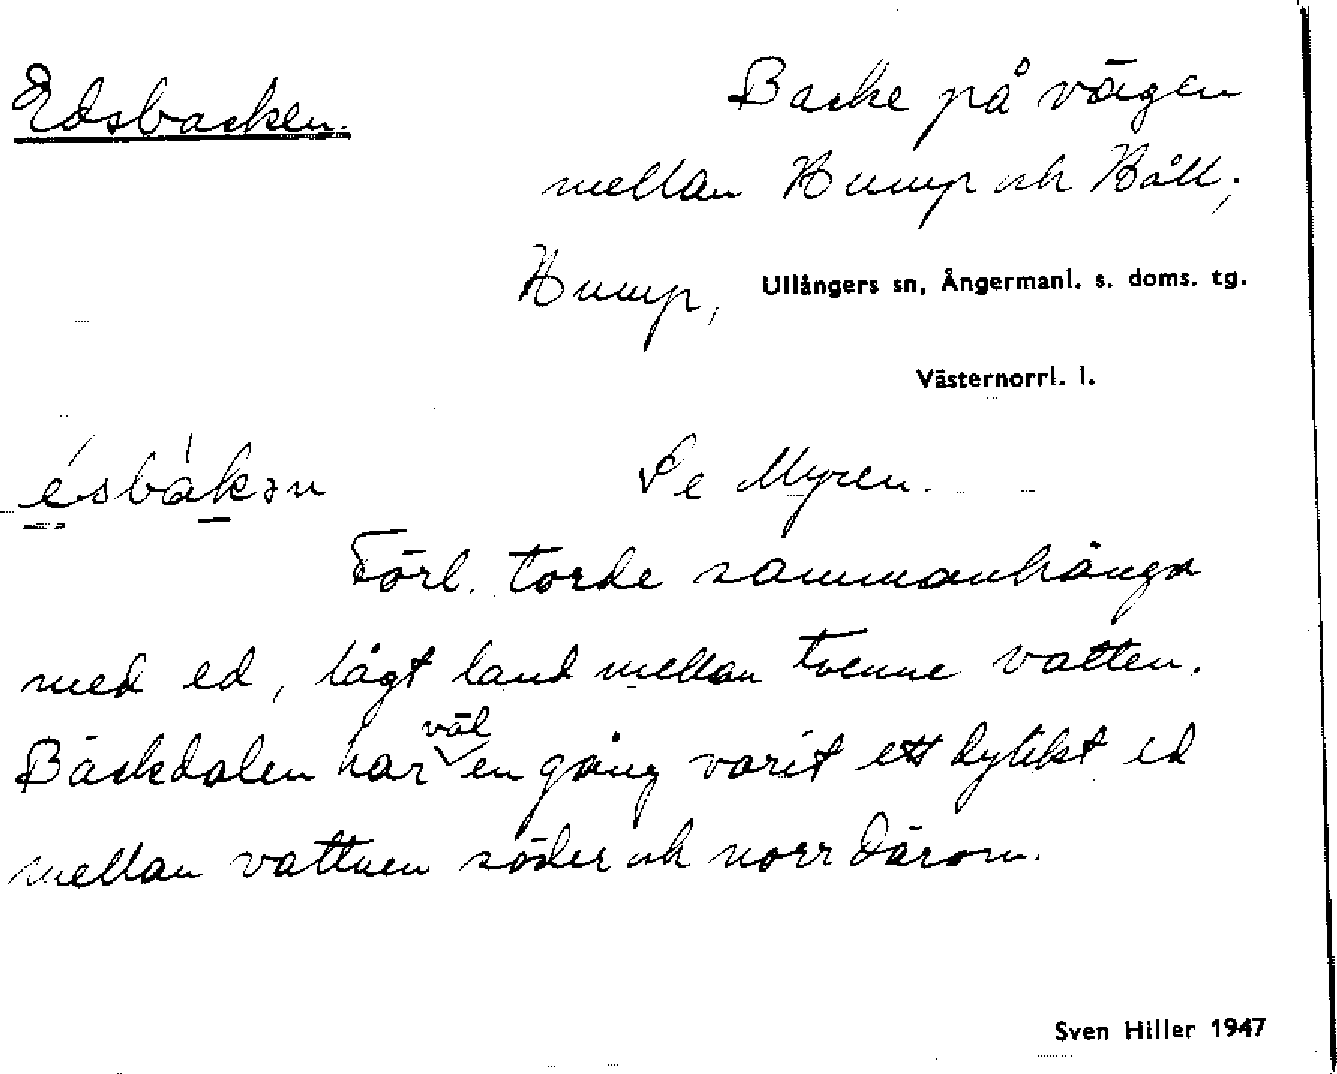 Edsbacken.
Backe på vägen
mellan Hump och Håll;
Hump, Ullångers sn, Ångermanl. s. doms. tg.
Västernorrl. l.
ésbákən
Se Myren.
Förl. torde sammanhänga
med ed, lågt land mellan tvenne vatten.
Bäckdalen har väl en gång varit ett dylikt ed
mellan vattnen söder och norr därom.
Sven Hiller 1947